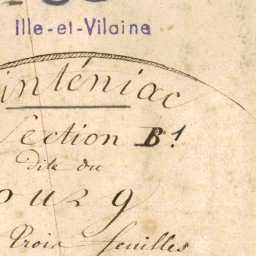 Ille-et-Vilaine
inténiac
Section B¹
dite du
ourg
Trois feuilles